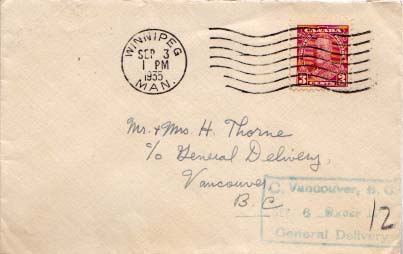 WINNIPEG
SEP 3
1 PM
1935
MAN.
CANADA
3 3
Mr. & Mrs. H. Thorne
c/o General Delivery,
Vancouver
B.C.
Vancouver, B. C.
6
12
General Delivery